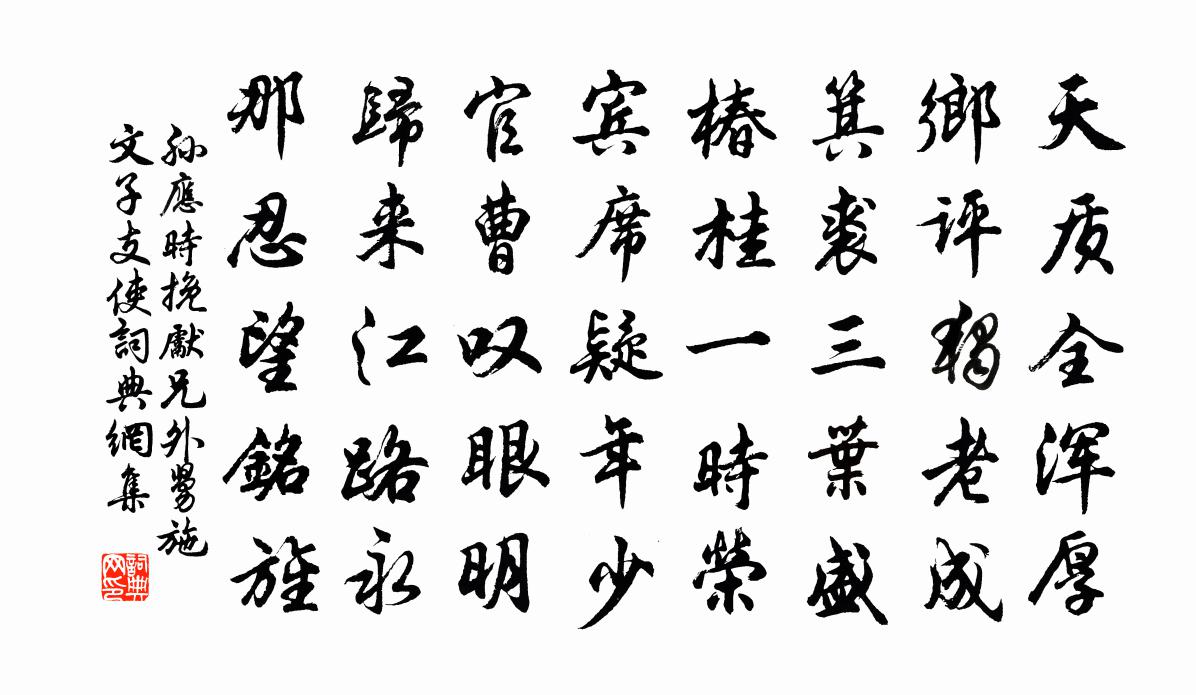 天质全浑厚
鄉评獨老成
箕裘三葉盛
椿桂一時榮
宾席疑年少
官曹叹眼明
歸来江路永
那忍望銘旌
孙應時挽獻兄外舅施
文子支使詞典網集
詞典
网印